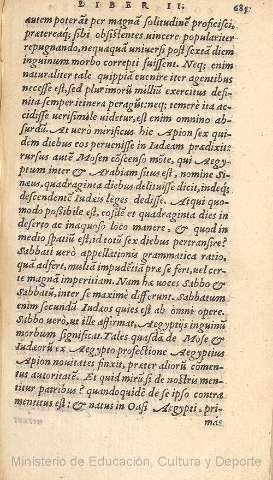 LIBER II.
685
autem poterāt per magnā solitudinē proficisci,
prætereaq; sibi obsistentes vincere populariter
repugnando, nequaquā universi post sextā diem
inguinum morbo correpti fuissent. Neq; enim
naturaliter tale quippiā evenire iter agentibus
necesse est, sed plurimorū millia exercitus defi-
nita semper itinera peragūt: neq; temerè ita ac-
cidisse verisimile videtur, est enim omnino ab-
surdū. At verò mirificus hic Apion sex qui-
dem diebus eos pervenisse in Iudæam prædixit:
rursus autē Mosen cōscenso mōte, qui Aegy-
ptum inter & Arabiam situs est, nomine Si-
næus, quadraginta diebus delituisse dicit, indeq;
descendentē Iudæis leges dedisse. Atqui quo-
modo possibile est, eosdē et quadraginta dies in
deserto ac inaquoso loco manere, & quod in
medio spatiū est, id totū sex diebus pertransire?
Sabbati verò appellationis grammatica ratio,
quā adfert, multā impudētiā præ se fert, vel cer-
te magnā imperitiam. Nam hæ voces Sabbo &
Sabbatū, inter se maximè differunt. Sabbatum
enim secundū Iudæos quies est ab omni opere.
Sabbo verò, ut ille affirmat, Aegyptiis inguinū
morbum significat. Tales quasdā de Mose &
Iudæorū ex Aegypto profectione Aegyptius
Apion novitates finxit, præter aliorū commen-
tus autoritatē. Et quid mirū si de nostris men-
titur patribus? quandoquidē de se ipso contra
mentitus est: & natus in Oasi Aegypti, pri-
mas
Ministerio de Educación, Cultura y Deporte